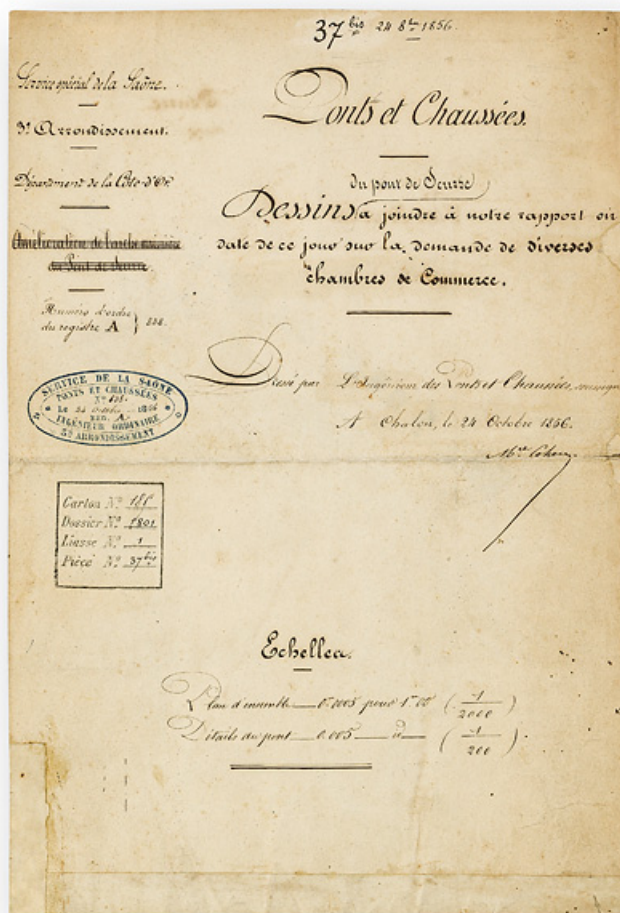 37 bis 24 8bre 1856.
Service spécial de la Saône.
3e Arrondissement.
Département de la Côte-d'Or
Amélioration de l'arche marinière
du Pont de Seurre.
Numéro d'ordre
du registre A
SERVICE DE LA SAÔNE
PONTS ET CHAUSSÉES
Le 24 Octobre 1856
REG. A.
INGÉNIEUR ORDINAIRE
3e ARRONDISSEMENT
Carton No
Dossier No 1801
Liasse No 1
Pièce No 37 bis
Ponts et Chaussées.
du pont de Seurre
Dessins à joindre à notre rapport en
date de ce jour sur la demande de diverses
chambres de Commerce.
Dressé par L'Ingénieur des Ponts et Chaussées,
A Chalon, le 24 Octobre 1856.
Echelles.
Plan d'ensemble 0m0005 pour 1m00 (1/2000)
Détails du pont 0.005 d° (1/200)